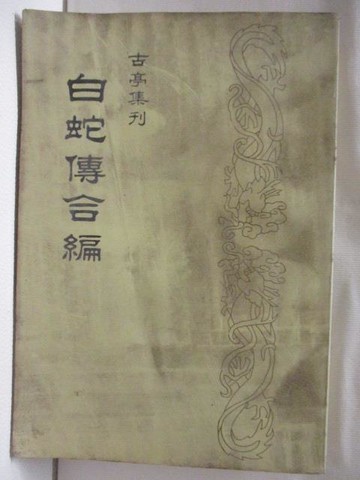 古亭集刊
白蛇傳合編